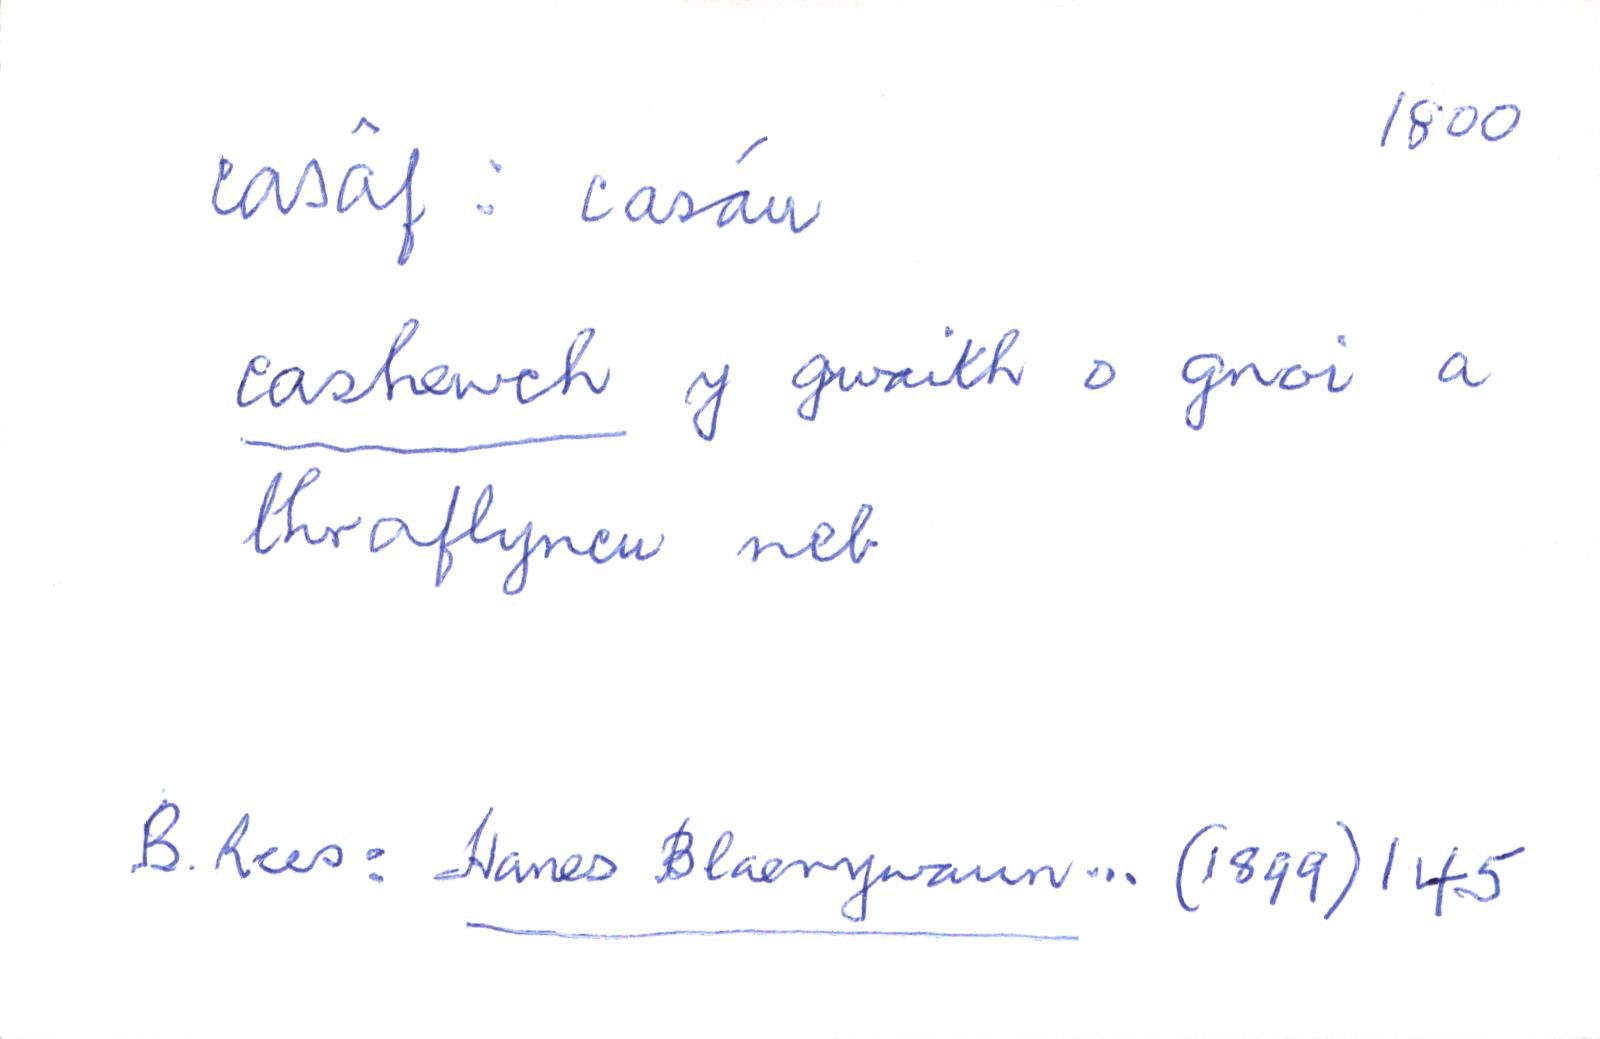 1800
casâf : casáu
cashewch y gwaith o gnoi a
thraflyncu neb
B. Rees: Hanes Blaenywaun... (1899) 145